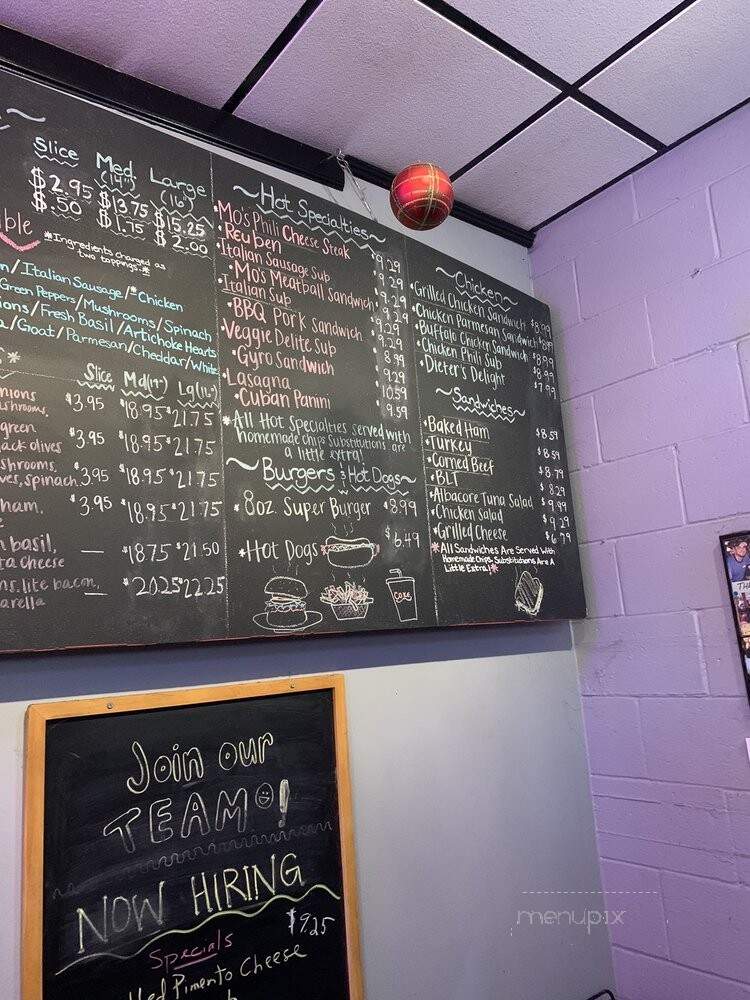 Slice Med. Large
(14") (16")
$2.95 $13.75 $15.25
$.50 $1.75 $2.00
*Ingredients charged as
two toppings.*
/Italian Sausage/*Chicken
Green Peppers/Mushrooms/Spinach
/Fresh Basil/Artichoke Hearts
/Goat/Parmesan/Cheddar/White
Slice Md(14") Lg(16")
$3.95 $18.95 $21.75
green
$3.95 $18.95 $21.75
spinach. $3.95 $18.95 $21.75
ham, $3.95 $18.95 $21.75
basil,
ta cheese — $18.75 $21.50
lite bacon,
arella — $20.25 $22.25
~Hot Specialties~
•Mo's Phili Cheese Steak $9.29
•Reuben $9.29
•Italian Sausage Sub $9.29
•Mo's Meatball Sandwich $9.29
•Italian Sub $9.29
•BBQ Pork Sandwich $9.29
•Veggie Delite Sub 8.99
•Gyro Sandwich 9.29
•Lasagna 10.59
•Cuban Panini 9.59
*All Hot Specialties served with
homemade chips. Substitutions are
a little extra!
~Burgers & Hot Dogs~
*8oz. Super Burger $8.99
*Hot Dogs $6.49
COKE
~Chicken~
•Grilled Chicken Sandwich $8.99
•Chicken Parmesan Sandwich $8.99
•Buffalo Chicken Sandwich $8.99
•Chicken Phili Sub $8.99
•Dieter's Delight $7.99
~Sandwiches~
•Baked Ham $8.59
•Turkey $8.59
•Corned Beef $8.79
•BLT 8.29
•Albacore Tuna Salad $9.99
•Chicken Salad $9.29
•Grilled Cheese $6.79
*All Sandwiches Are Served With
Homemade Chips. Substitutions Are A
Little Extra!*
Join our
TEAM!
NOW HIRING
Specials $9.25
Pimento Cheese
menupix